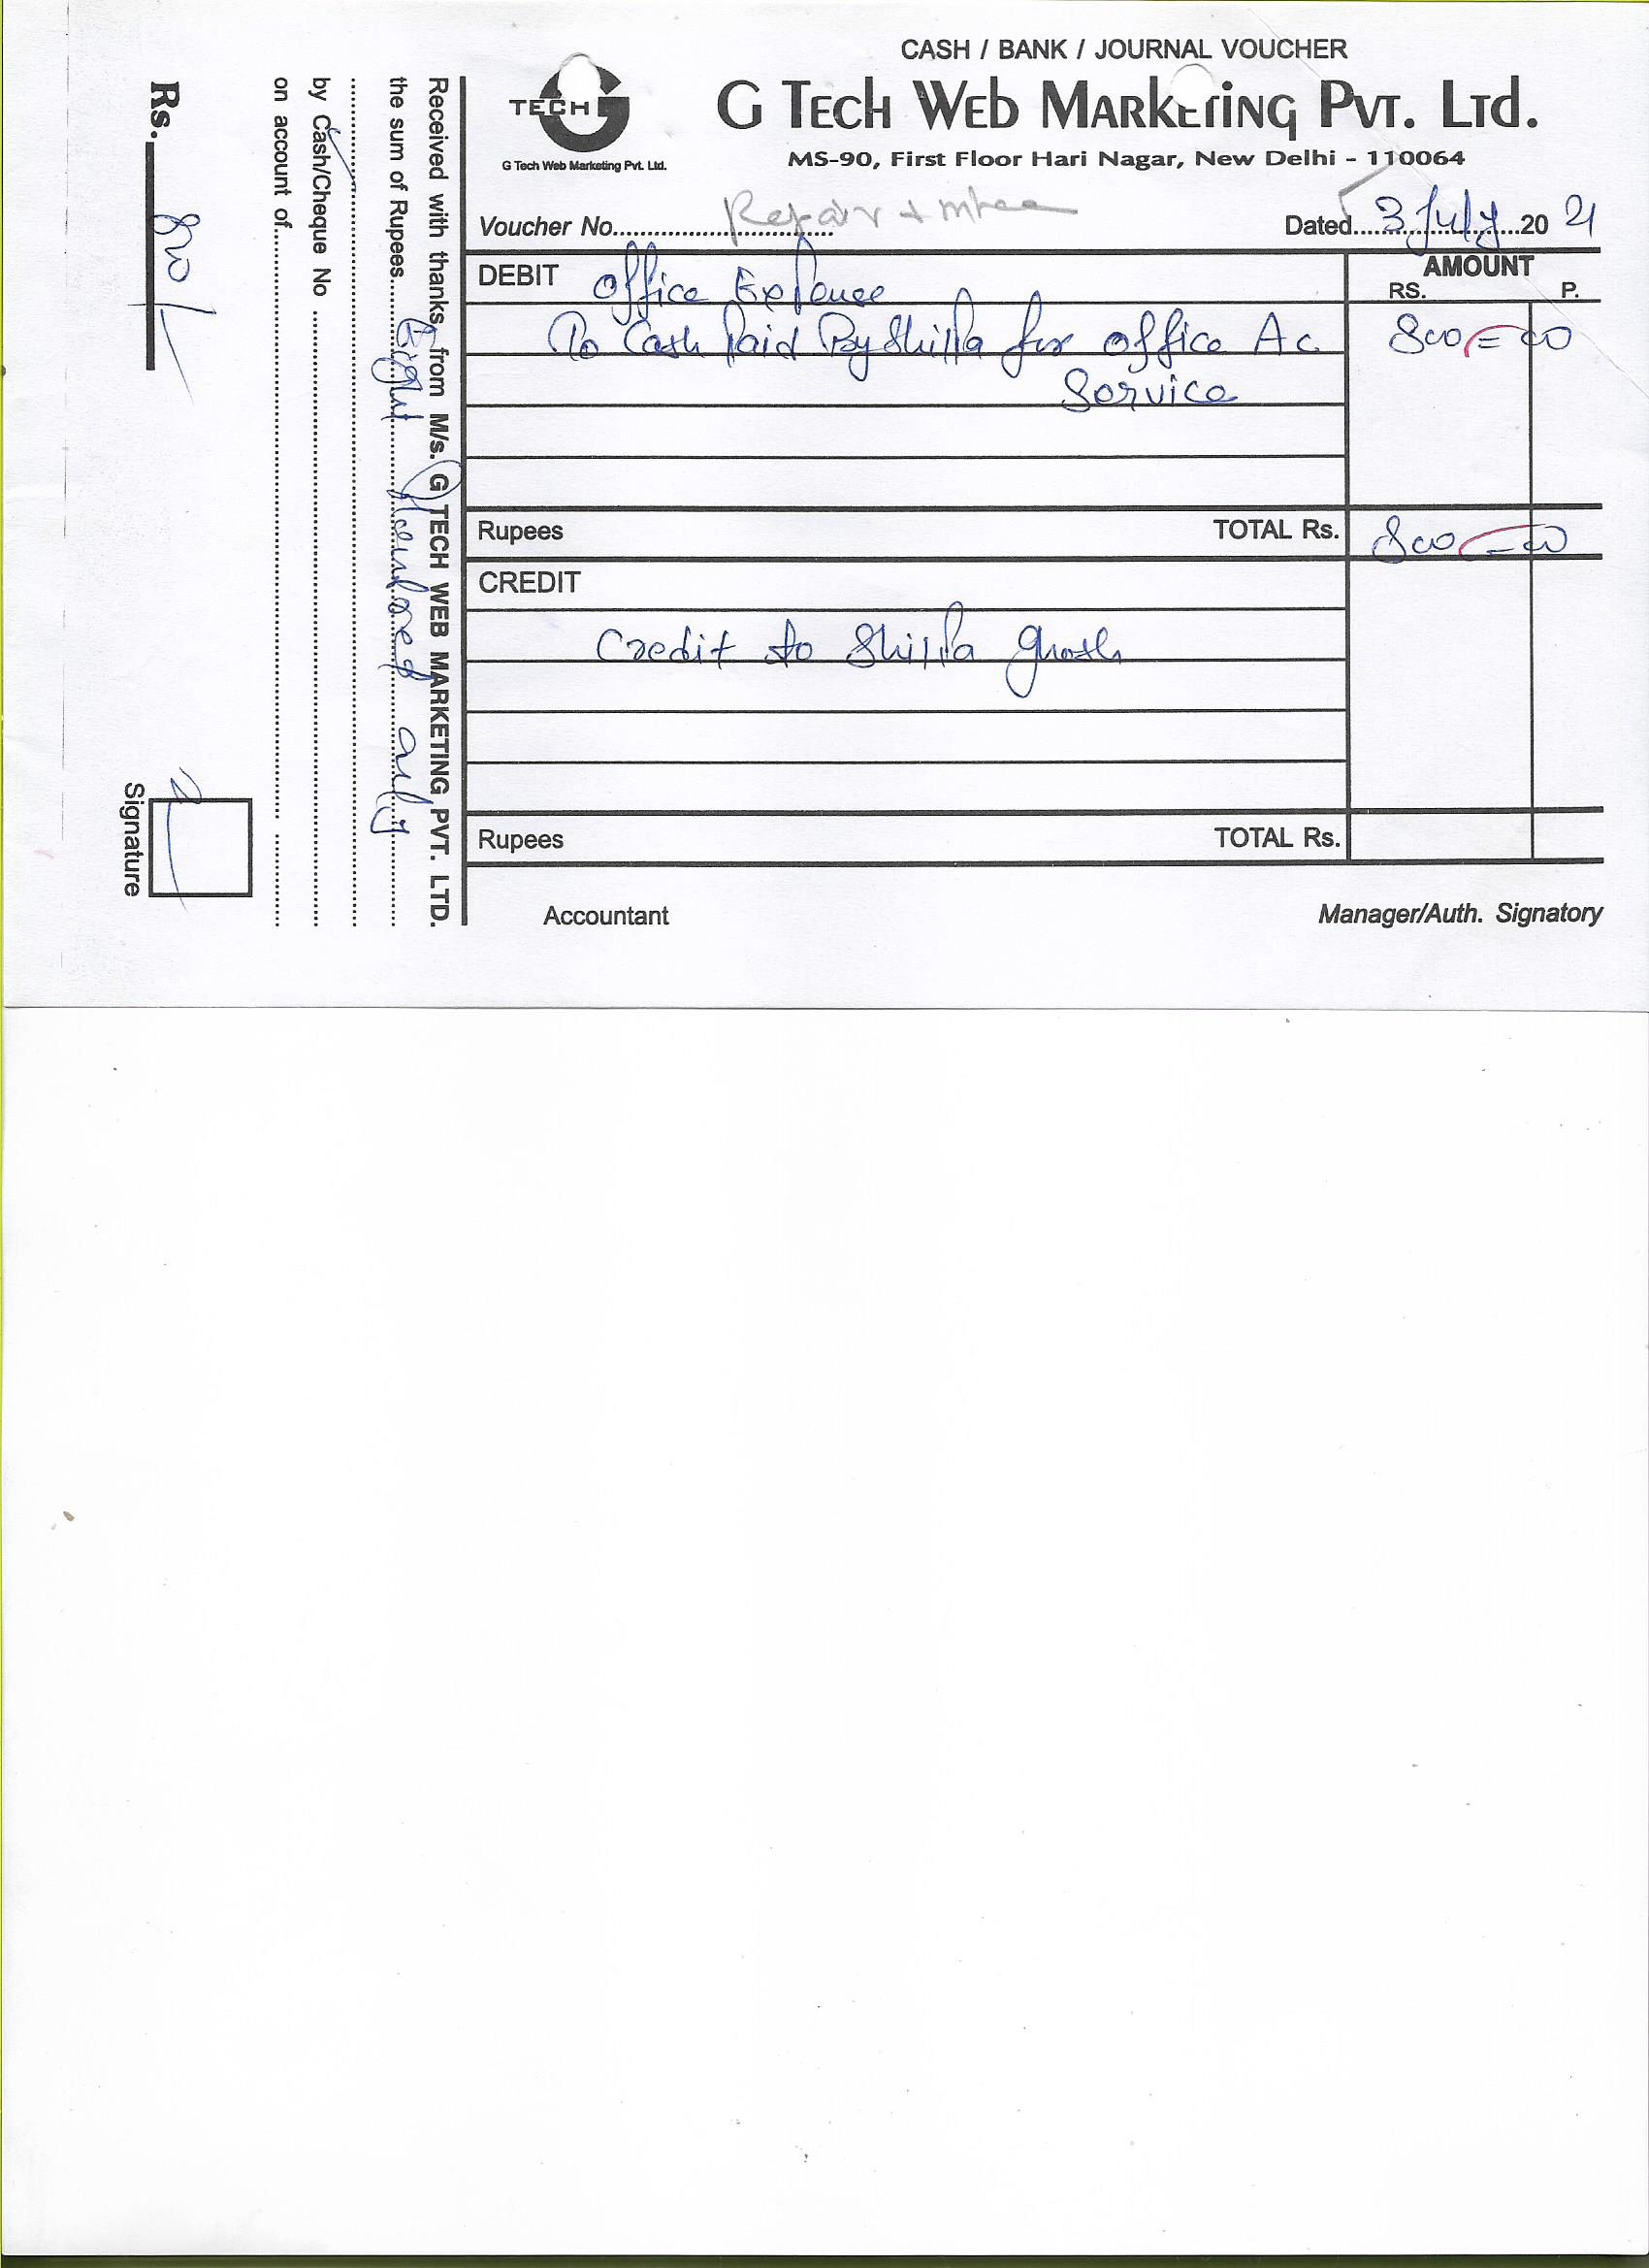 CASH / BANK / JOURNAL VOUCHER
TECH G
G Tech Web Marketing Pvt. Ltd.
G Tech Web Marketing Pvt. Ltd.
MS-90, First Floor Hari Nagar, New Delhi - 110064
Voucher No. Repair + mtce
Dated 3 July 2021
DEBIT Office Expense
AMOUNT
RS. P.
To Cash Paid By Shilpa for office Ac 800 = 00
Service
Rupees TOTAL Rs. 800 - 00
CREDIT
Credit to Shilpa Ghosh
Rupees TOTAL Rs.
Accountant Manager/Auth. Signatory
Received with thanks from M/s. G TECH WEB MARKETING PVT. LTD.
the sum of Rupees Eight Hundred only
by Cash/Cheque No
on account of
Rs. 800/-
Signature